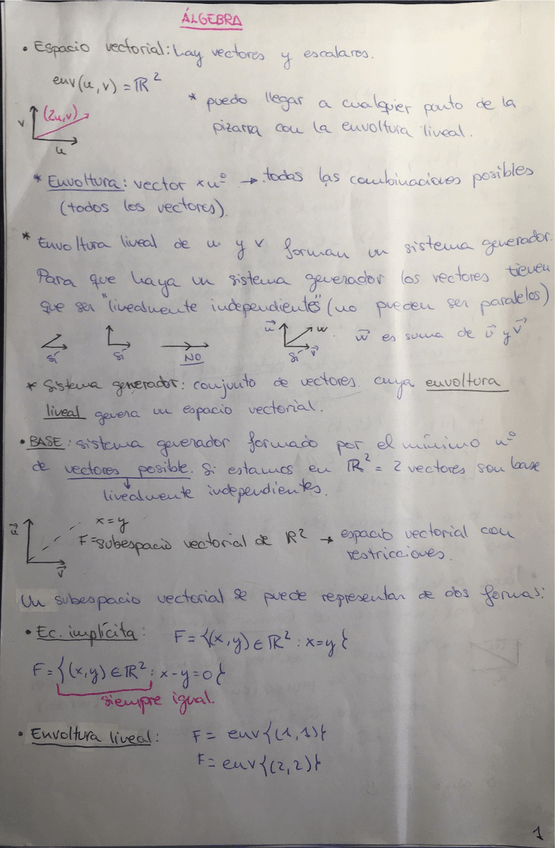 ÁLGEBRA
• Espacio vectorial: hay vectores y escalares.
env(u,v) = ℝ²
* puedo llegar a cualquier punto de la
pizarra con la envoltura lineal.
v (2u,v)
u
* Envoltura: vector x nº → todas las combinaciones posibles
(todos los vectores).
* Envoltura lineal de u y v forman un sistema generador.
Para que haya un sistema generador los vectores tienen
que ser "linealmente independientes" (no pueden ser paralelos)
Sí Sí NO u⃗ w Sí v⃗ w⃗ es suma de u⃗ y v⃗
* Sistema generador: conjunto de vectores cuya envoltura
lineal genera un espacio vectorial.
• BASE: sistema generador formado por el mínimo nº
de vectores posible. Si estamos en ℝ² = 2 vectores son base
↓
linealmente independientes.
u⃗ x=y
F=subespacio vectorial de ℝ² → espacio vectorial con
restricciones.
v⃗
Un subespacio vectorial se puede representar de dos formas:
• Ec. implícita: F={(x,y)∈ℝ²: x=y}
F={(x,y)∈ℝ²: x-y=0}
siempre igual.
• Envoltura lineal: F= env{(1,1)}
F= env{(2,2)}
1